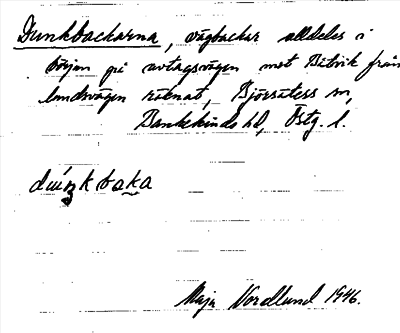 Dunkbackarna, vägbackar alldeles i
början på avtagsvägen mot Båtvik från
landsvägen räknat, Björsäters sn,
Bankekinds hd, Östg. l.
Maja Nordlund 1946.